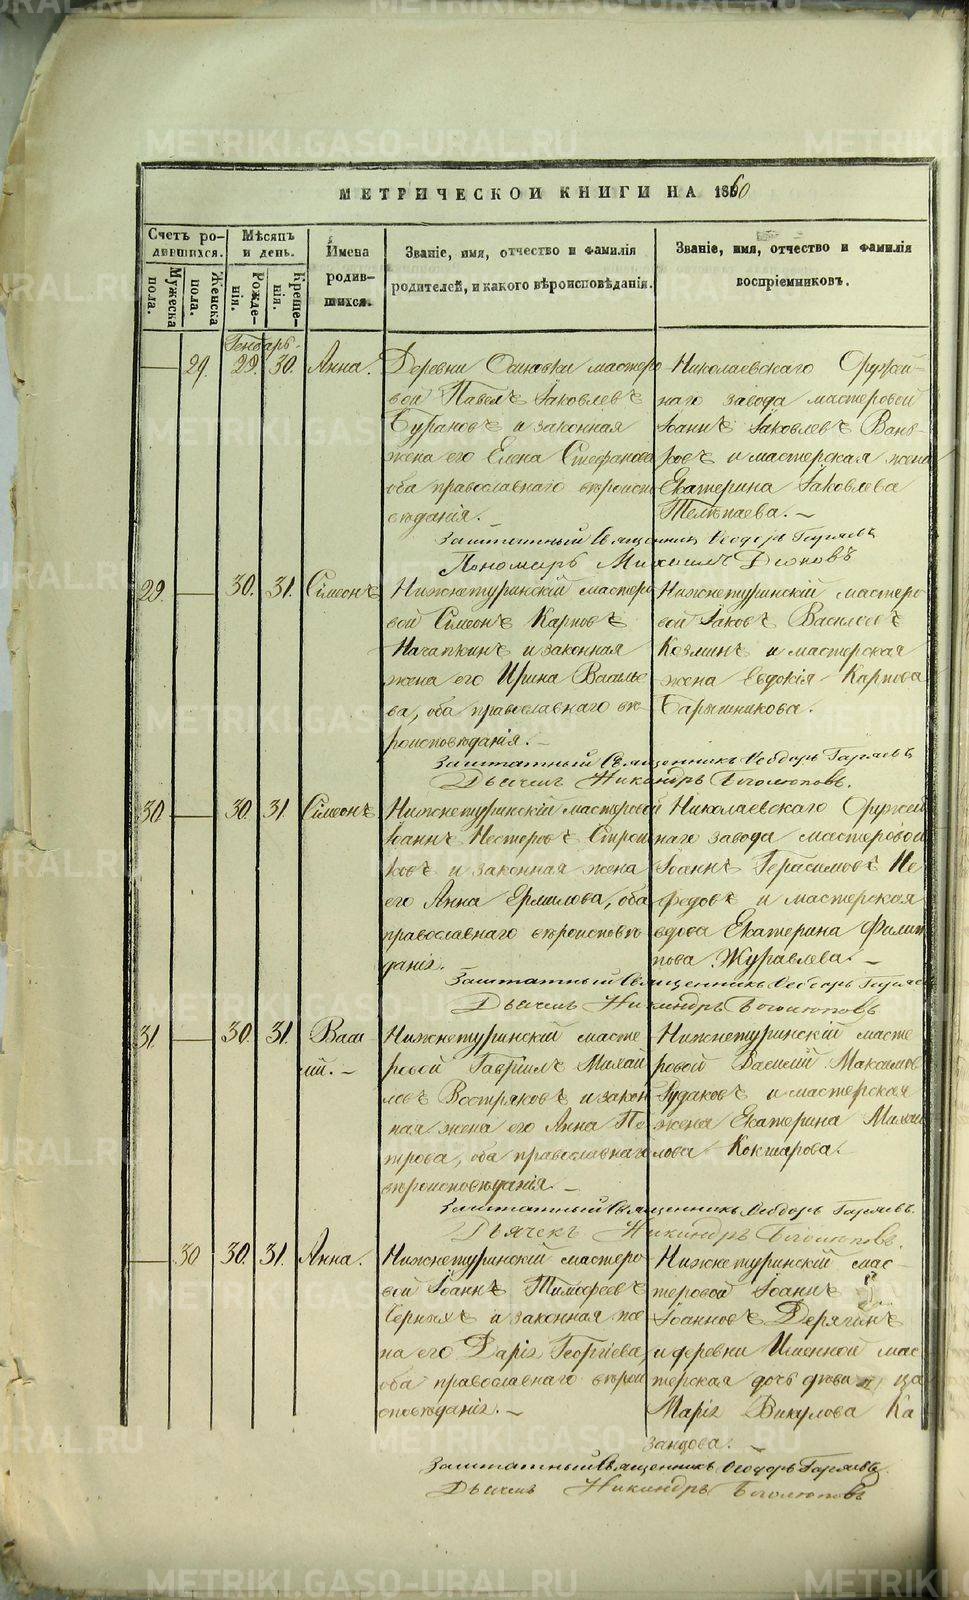 METRIKI.GASO-URAL.RU
МЕТРИЧЕСКОЙ КНИГИ НА 1860
Счетъ родившихся.
Мужеска пола.
Женска пола.
Мѣсяцъ и день.
Рожденія.
Крещенія.
Имена родившихся.
Званіе, имя, отчество и фамилія
родителей, и какого вѣроисповѣданія.
Званіе, имя, отчество и фамилія
воспріемниковъ.
Генварь
29. 29. 30. Анна.
Деревни мастеро
вой Павелъ Іаковлевъ
Бурановъ и законная
жена его Елена Стефанова
оба православнаго вѣроиспо
вѣданія.
Николаевскаго Оружей-
наго завода мастеровой
Іоаннъ Іаковлевъ
и мастерская жена
Екатерина Іаковлева
Телѣпаева.
Заштатный Священникъ Ѳеодоръ Гаряевъ
Пономарь Михаилъ
29. 30. 31. Сімеонъ
Нижнетуринскій мастеро
вой Сімеонъ Карповъ
Начапкинъ и законная
жена его Ирина Василье
ва, оба православнаго вѣ-
роисповѣданія.
Нижнетуринскій мастеро
вой Іаковъ Васильевъ
Козминъ и мастерская
жена Евдокія Карпова
Барышникова.
Заштатный Священникъ Ѳеодоръ Гаряевъ
Дьячекъ Никандръ Боголюповъ.
30 30. 31. Сімеонъ
Нижнетуринскій мастеровой
Іоаннъ Несторовъ
и законная жена
его Анна Ермилова, оба
православнаго вѣроисповѣ
данія.
Николаевскаго Оружей
наго завода мастеровой
Іоаннъ Герасимовъ Не
федовъ и мастерская
вдова Екатерина Филип
пова Журавлева.
Заштатный Священникъ Ѳеодоръ Гаряев
Дьячекъ Никандръ Боголюповъ
31. 30. 31. Васи
лій.
Нижнетуринскій масте
ровой Гавріилъ Михай
ловъ Востряковъ и закон
ная жена его Анна Пе
трова, оба православнаго
вѣроисповѣданія.
Нижнетуринскій масте
ровой Василій Максимов
Рудаковъ и мастерская
жена Екатерина Михаи
лова Кокшарова.
Заштатный Священникъ Ѳеодоръ Гаряевъ.
Дьячекъ Никандръ Боголюповъ.
30 30. 31. Анна.
Нижнетуринскій мастеро-
вой Іоаннъ Тимофеевъ
Черныхъ и законная же
на его Дарія Георгіева,
оба православнаго вѣрои
сповѣданія.
Нижнетуринскій мас-
теровой Іоаннъ
Іоанновъ Дерягинъ
и деревни Именной мас
терская дочь дѣвица
Марія Викулова Ка
занцова.
Заштатный Священникъ Ѳеодоръ Гаряевъ
Дьячекъ Никандръ Боголюповъ